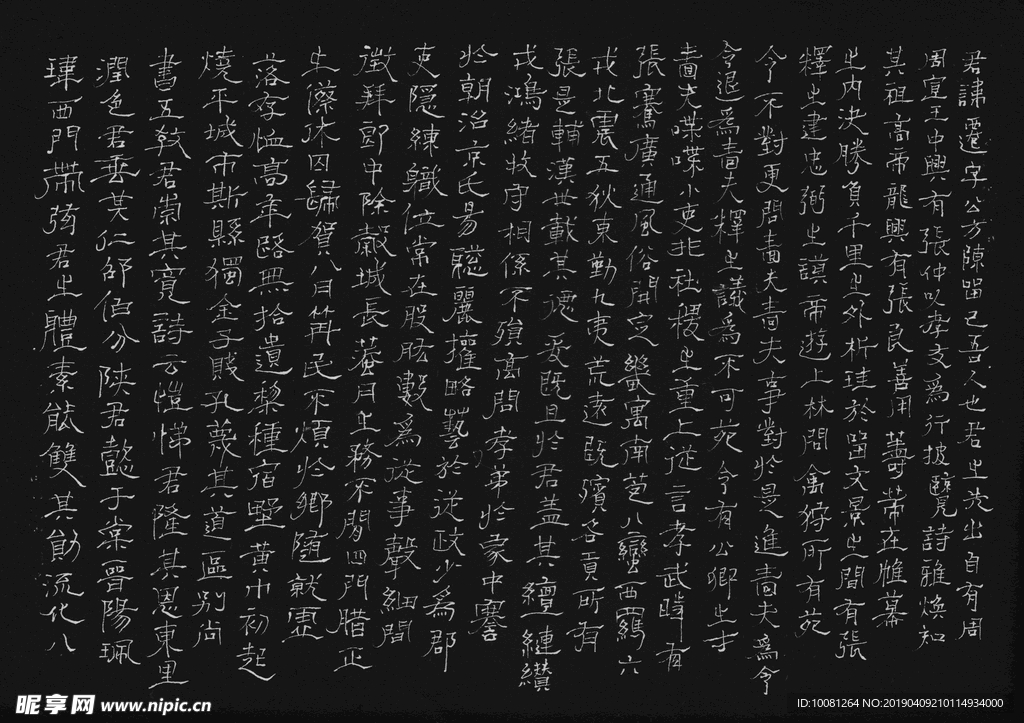 君諱遷字公方陳留己吾人也君之先出自有周
周宣王中興有張仲以孝友為行披覽詩雅煥知
其祖高帝龍興有張良善用籌策在帷幕
之內決勝負千里之外析珪於留文景之間有張
釋之建忠弼之謨帝遊上林問禽狩所有苑
令不對更問嗇夫嗇夫事對於是進嗇夫為令
令退為嗇夫釋之議為不可苑令有公卿之才
嗇夫喋喋小吏非社稷之重上從言孝武時有
張騫廣通風俗開定畿寓南苞八蠻西羈六
戎北震五狄東勤九夷荒遠既殯各貢所有
張是輔漢世載其德爰既且於君蓋其繵縺纘
戎鴻緒牧守相係不殞高問孝弟於家中謇
於朝治京氏易聰麗權略藝於從政少為郡
吏隱練職位常在股肱數為從事聲細聞
徵拜郎中除穀城長蠶月之務不閉四門臘正
之傺休囚歸賀八月筭民不煩於鄉隨就虛
落存恤高年路無拾遺犁種宿野黃巾初起
燒平城市斯縣獨全子賤孔蔑其道區別尚
書五教君崇其寬詩云愷悌君隆其恩東里
潤色君垂其仁邵伯分陝君懿于棠晉陽珮
瑋西門帶弦君之體素能雙其勛流化八
昵享网 www.nipic.cn
ID:10081264 NO:20190409210114934000